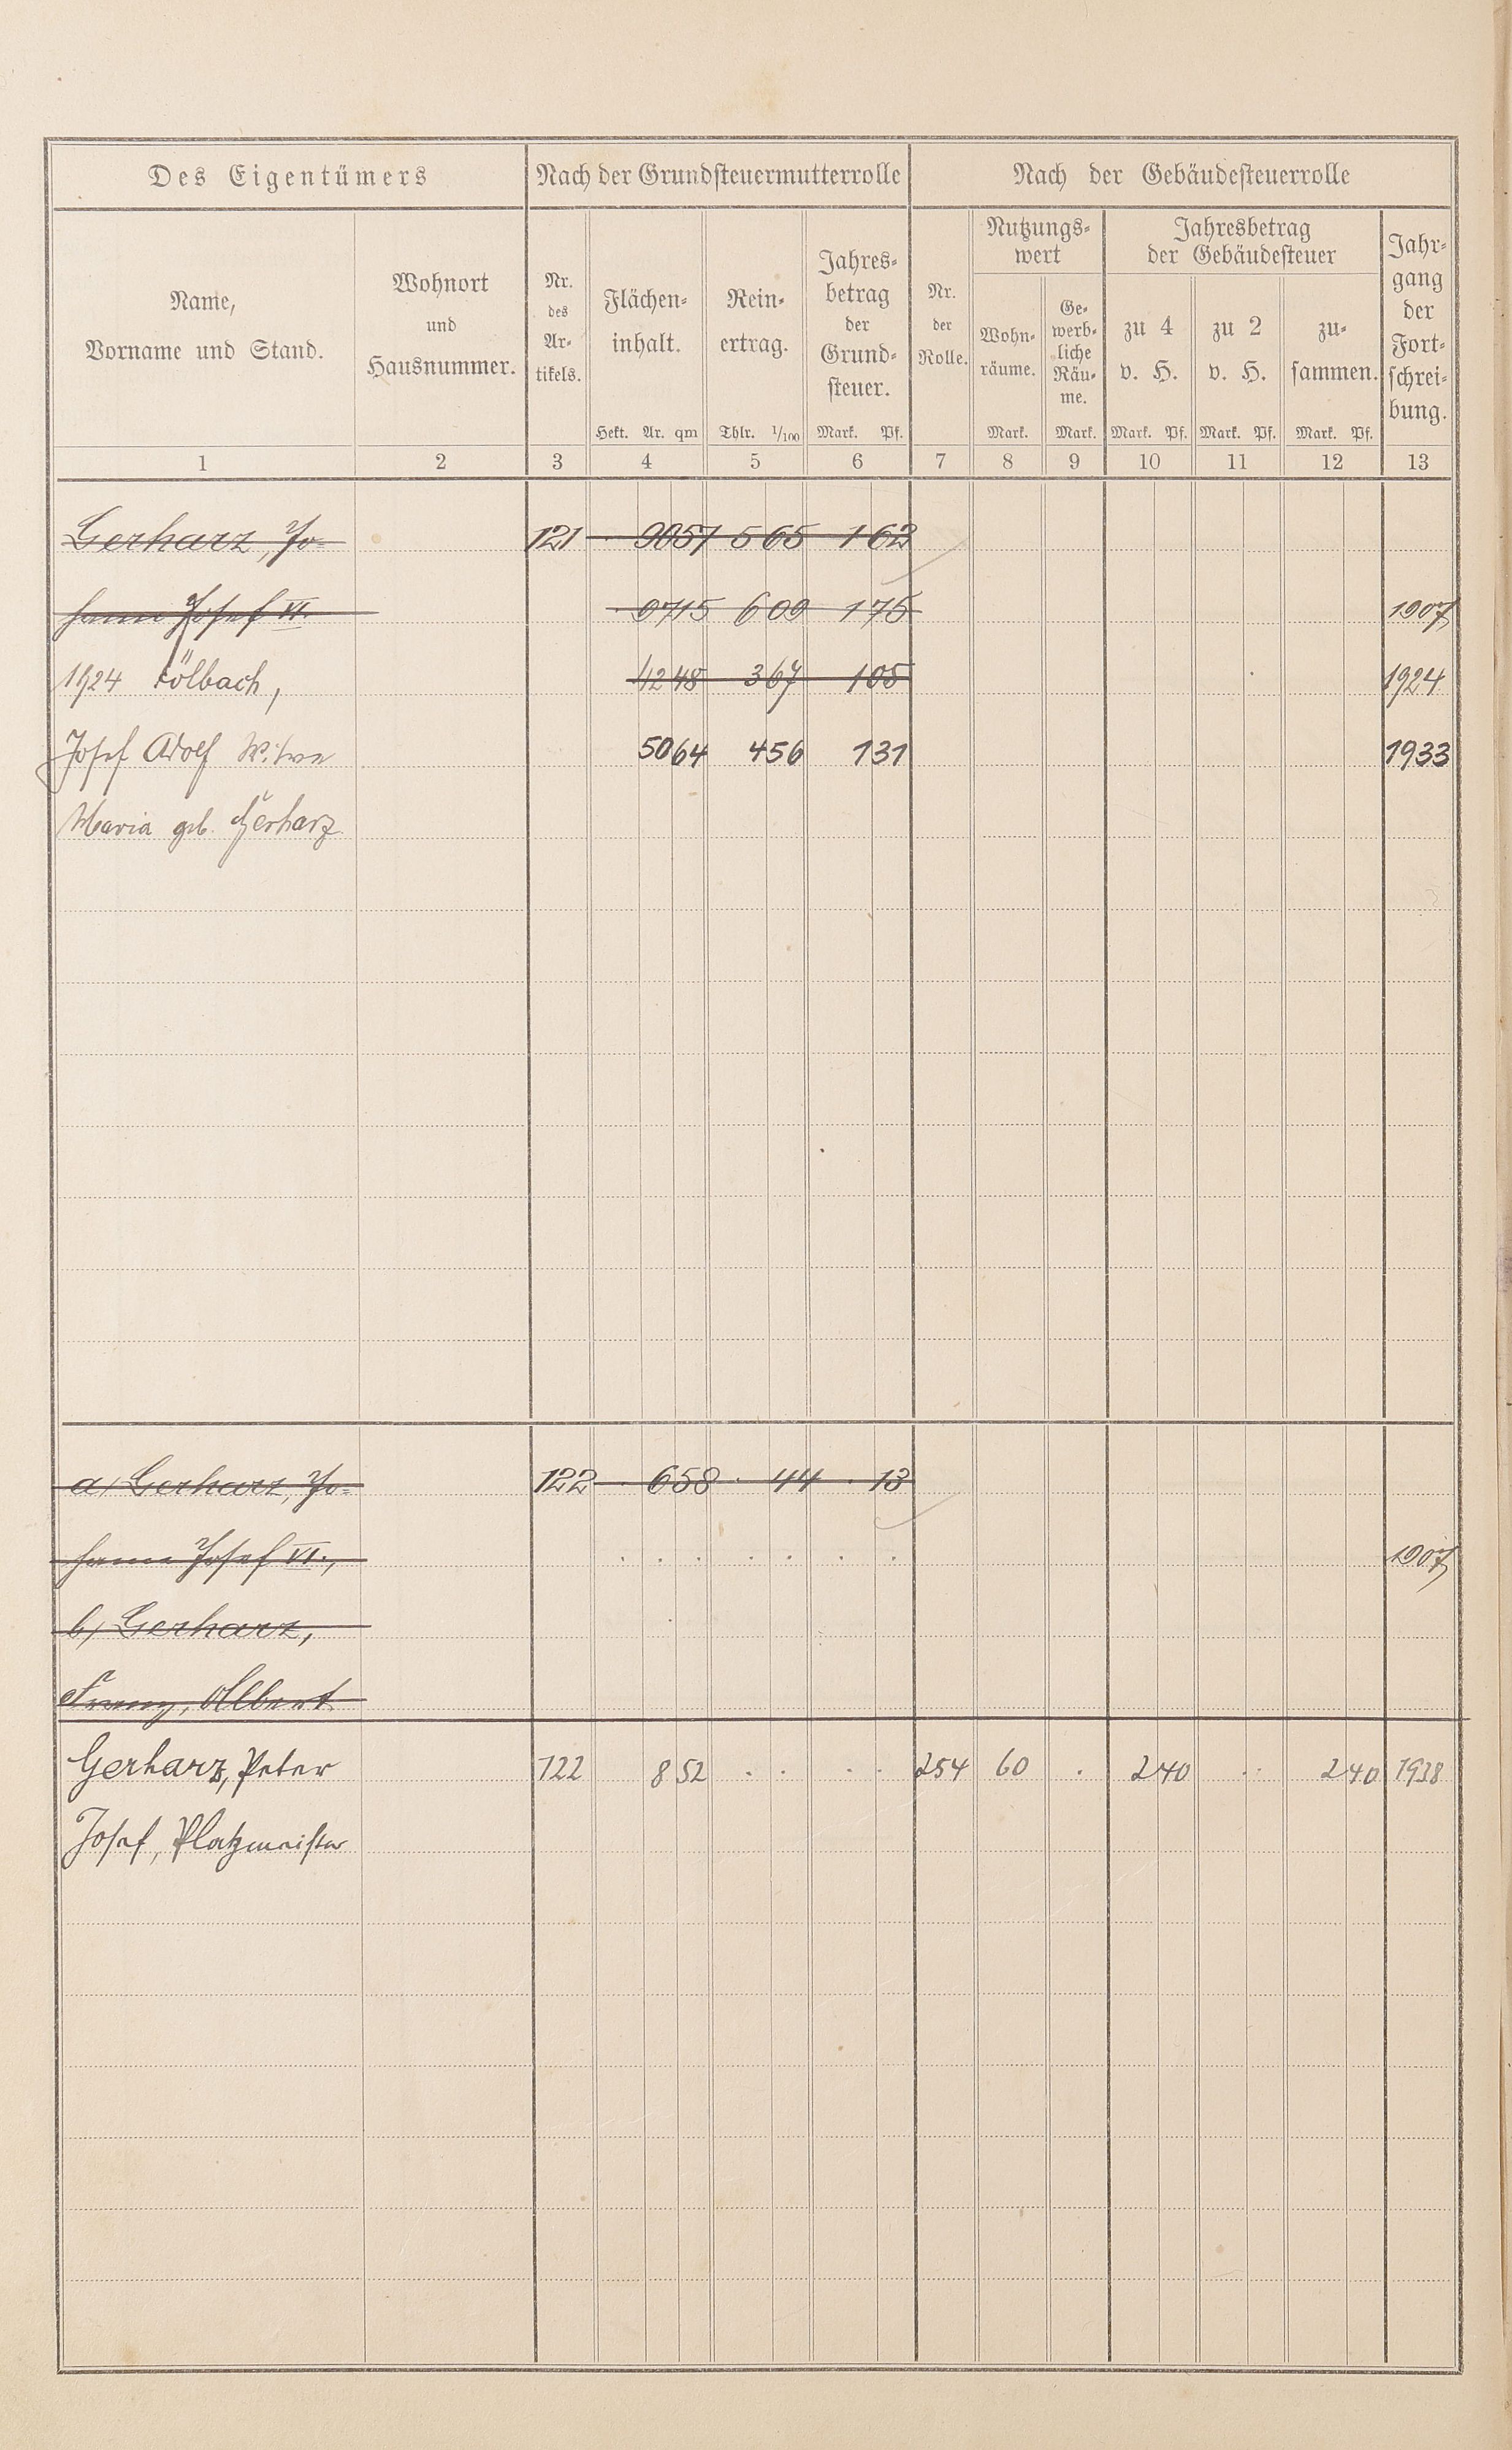 Des Eigentümers Nach der Grundsteuermutterrolle Nach der Gebäudesteuerrolle
Name,
Vorname und Stand.
Wohnort
und
Hausnummer.
Nr.
des
Ar-
tikels.
Flächen-
inhalt.
Hekt. Ar. qm
Rein-
ertrag.
Thlr. 1/100
Jahres-
betrag
der
Grund-
steuer.
Mark. Pf.
Nr.
der
Rolle.
Nutzungs-
wert
Wohn-
räume.
Mark.
Ge-
werb-
liche
Räu-
me.
Mark.
Jahresbetrag
der Gebäudesteuer
zu 4
v. H.
Mark. Pf.
zu 2
v. H.
Mark. Pf.
zu-
sammen.
Mark. Pf.
Jahr-
gang
der
Fort-
schrei-
bung.
1 2 3 4 5 6 7 8 9 10 11 12 13
Gerharz, Jo- 121 . 9057 565 162
hann Josef VI. 9715 609 175 1907
1924 Fölbach, 4248 367 105 1924
Josef Adolf Witwe 5064 456 131 1933
Maria geb. Gerharz
a) Gerharz, Jo- 122 . 658 . 44 . 13
hann Josef VI., . . . . . . . 1907
b) Gerharz,
Franz, Albert
Gerharz, Peter 122 8 52 . . . . 254 60 . 240 . . 240 1938
Josef, Platzmeister